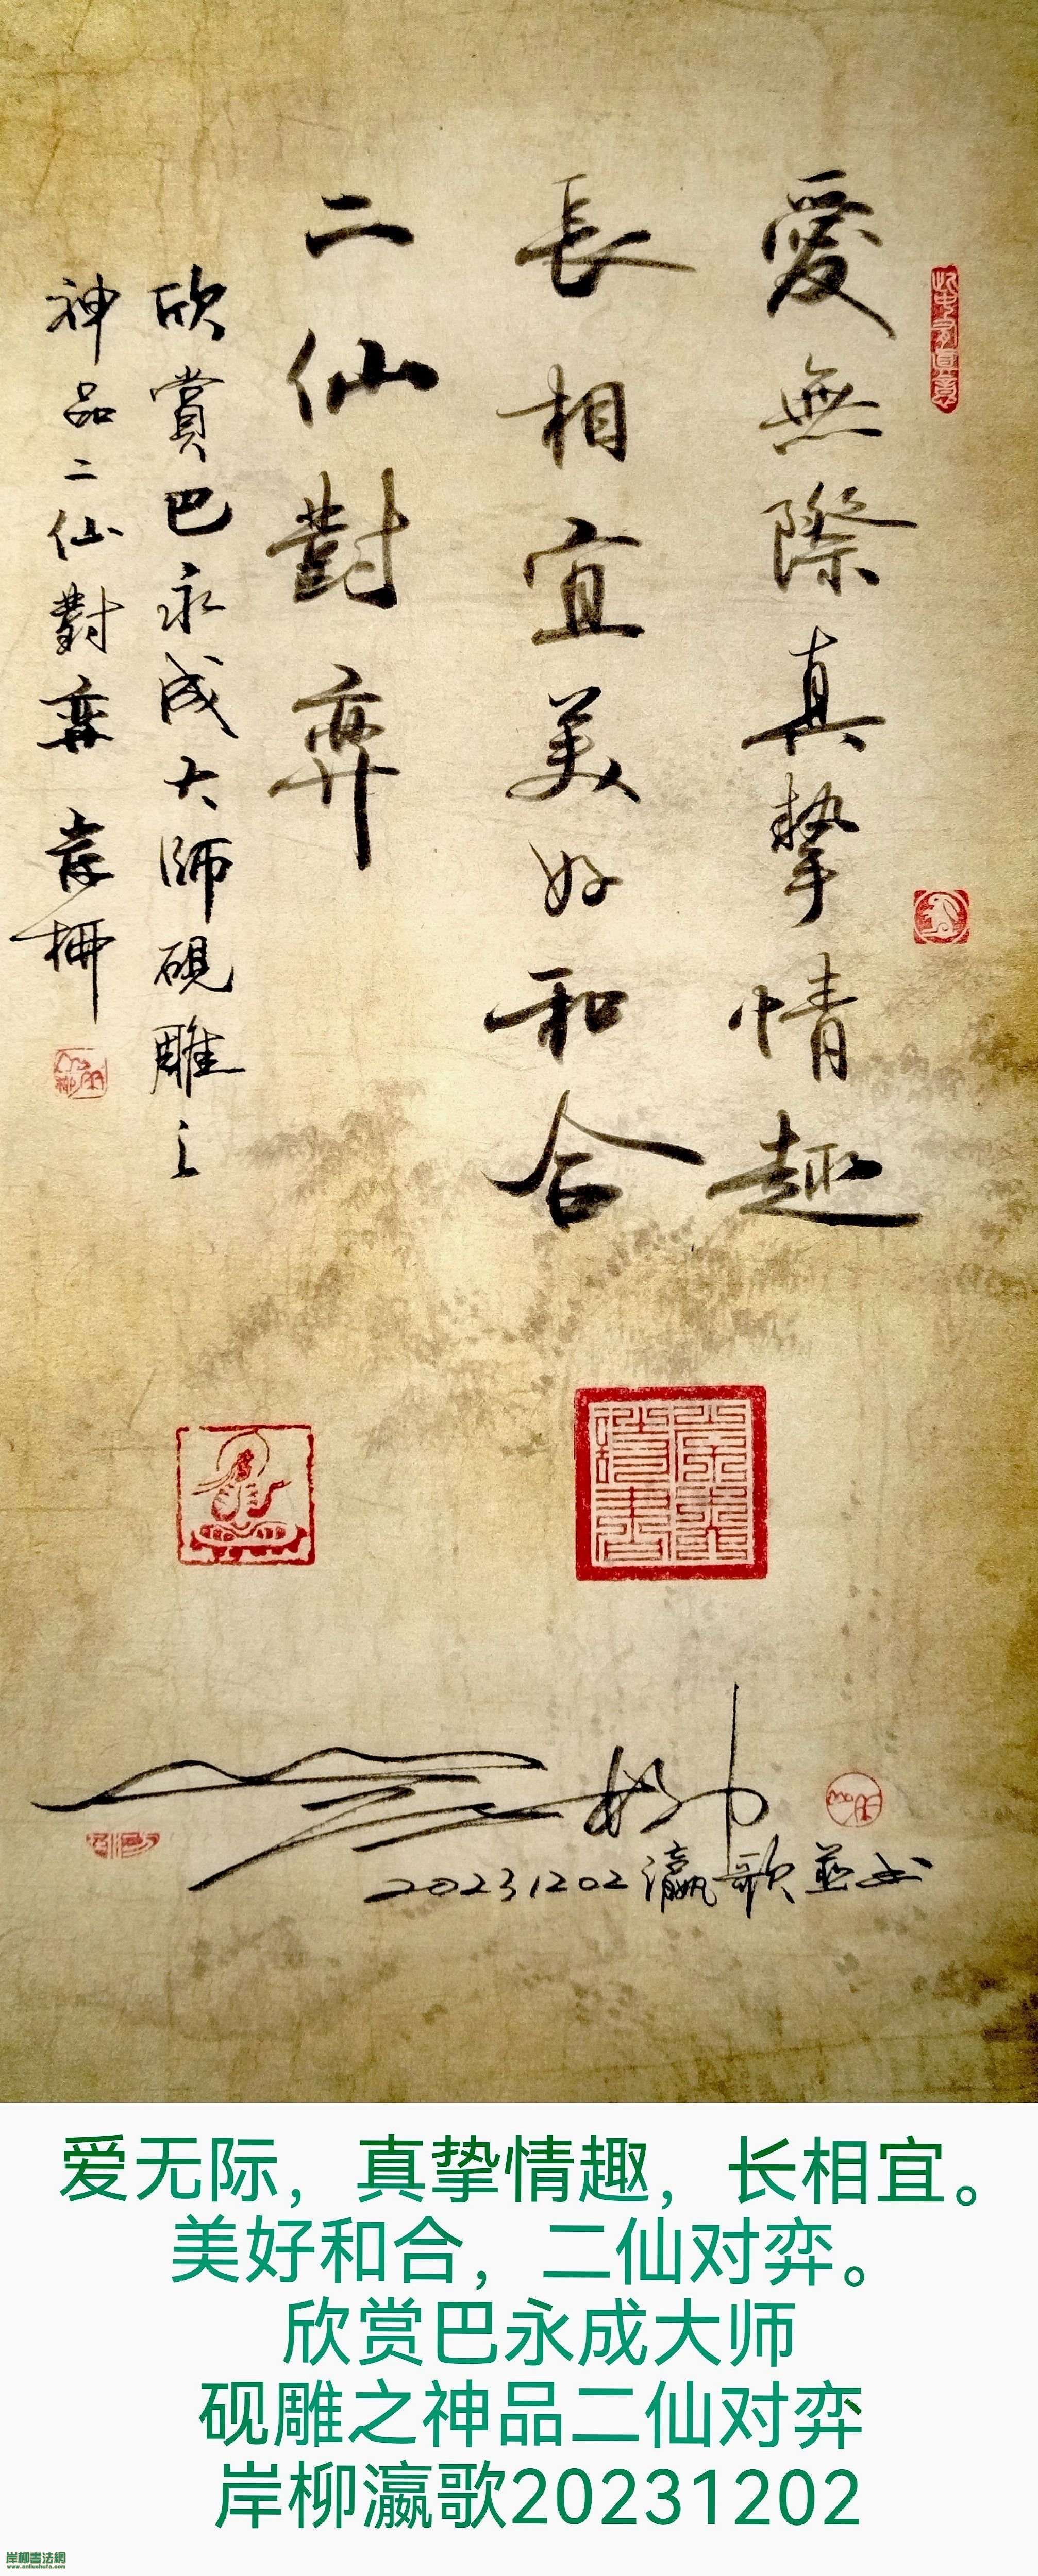 愛無際真摯情趣
長相宜美好和合
二仙對弈
欣賞巴永成大師硯雕之
神品二仙對弈 岸柳
此中有真意
20231202瀛歌並书
爱无际，真挚情趣，长相宜。
美好和合，二仙对弈。
欣赏巴永成大师
砚雕之神品二仙对弈
岸柳瀛歌20231202
岸柳書法網
www.anliushufa.com